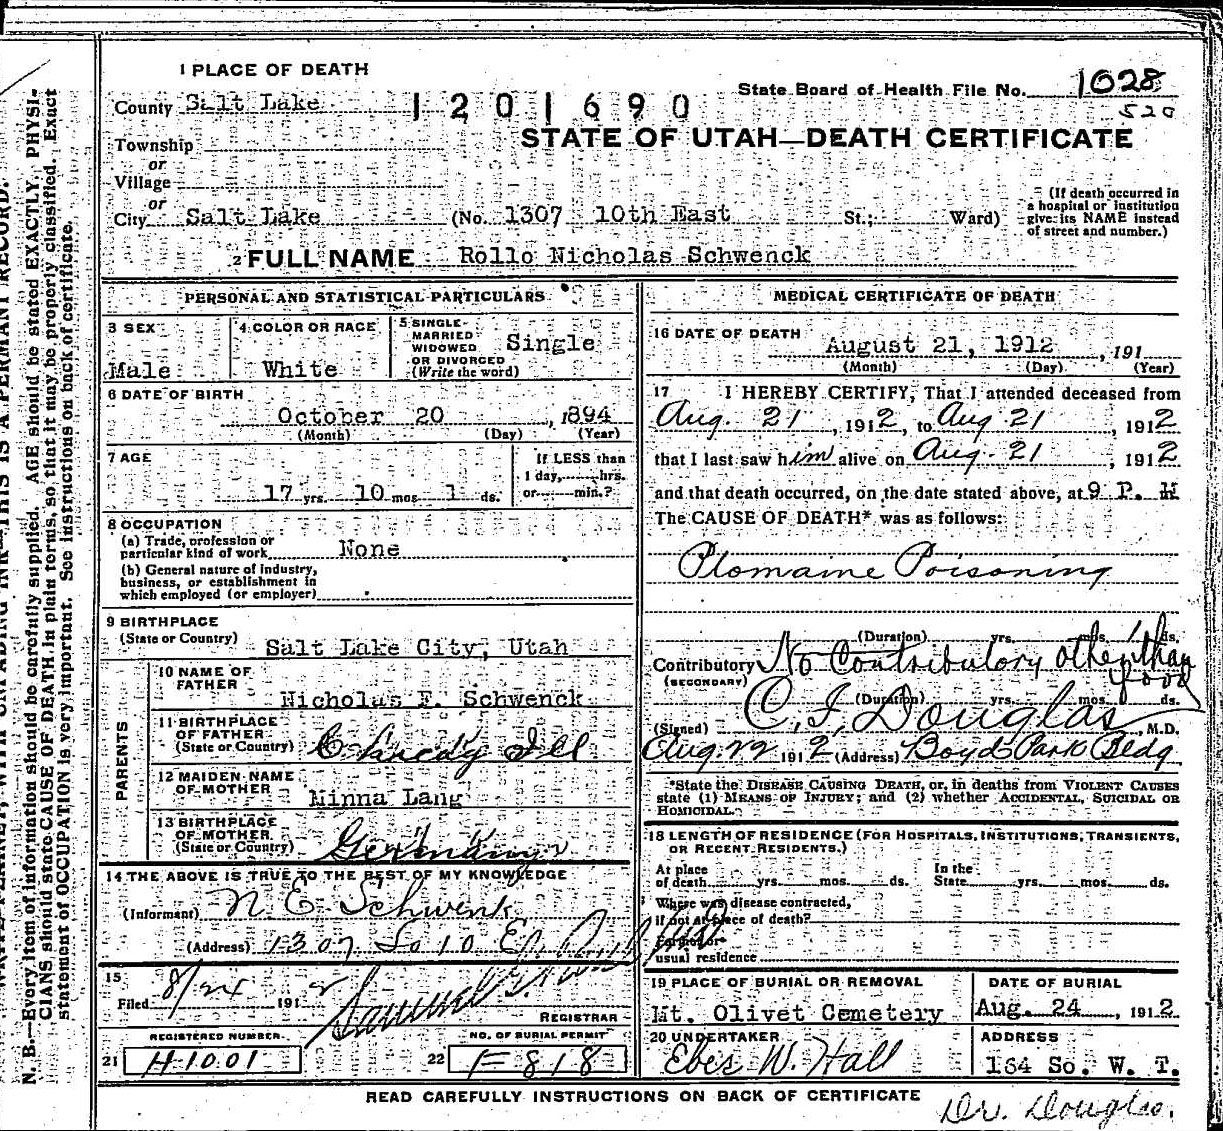 1 PLACE OF DEATH
State Board of Health File No. 1028
County Salt Lake
1201690
520
STATE OF UTAH—DEATH CERTIFICATE
Township
or
Village
or
City Salt Lake (No. 1307 10th East St.; Ward)
(If death occurred in
a hospital or institution
give its NAME instead
of street and number.)
2 FULL NAME Rollo Nicholas Schwenck
PERSONAL AND STATISTICAL PARTICULARS
3 SEX
Male
4 COLOR OR RACE
White
5 SINGLE
MARRIED
WIDOWED
OR DIVORCED
(Write the word)
Single
6 DATE OF BIRTH
October 20, 1894
(Month) (Day) (Year)
7 AGE
17 yrs. 10 mos 1 ds.
If LESS than
1 day, hrs.
or min.?
8 OCCUPATION
(a) Trade, profession or
particular kind of work None
(b) General nature of industry,
business, or establishment in
which employed (or employer)
9 BIRTHPLACE
(State or Country) Salt Lake City, Utah
PARENTS
10 NAME OF
FATHER
Nicholas E. Schwenck
11 BIRTHPLACE
OF FATHER
(State or Country) Ill
12 MAIDEN NAME
OF MOTHER
Minna Lang
13 BIRTHPLACE
OF MOTHER
(State or Country) Germany
14 THE ABOVE IS TRUE TO THE BEST OF MY KNOWLEDGE
(Informant) N E Schwenk
(Address) 1307 So 10 E
15
Filed 8/24 1912 Samuel G.
REGISTRAR
REGISTERED NUMBER
21 H1001
NO. OF BURIAL PERMIT
22 F818
MEDICAL CERTIFICATE OF DEATH
16 DATE OF DEATH
August 21, 1912, 191
(Month) (Day) (Year)
17 I HEREBY CERTIFY, That I attended deceased from
Aug. 21, 1912, to Aug 21, 1912
that I last saw him alive on Aug. 21, 1912
and that death occurred, on the date stated above, at 9 P. M
The CAUSE OF DEATH* was as follows:
Ptomaine Poisoning
(Duration) yrs. mos. 1 ds.
Contributory No Contributory other than
(SECONDARY) food
(Duration) yrs. mos. ds.
(Signed) C. F. Douglas, M.D.
Aug 22 1912 (Address) Boyd Park Bldg
*State the DISEASE CAUSING DEATH, or, in deaths from VIOLENT CAUSES
state (1) MEANS OF INJURY; and (2) whether ACCIDENTAL, SUICIDAL OR
HOMICIDAL.
18 LENGTH OF RESIDENCE (FOR HOSPITALS, INSTITUTIONS, TRANSIENTS,
OR RECENT RESIDENTS.)
At place
of death yrs. mos. ds.
In the
State yrs. mos. ds.
Where was disease contracted,
if not at place of death?
Former or
usual residence
19 PLACE OF BURIAL OR REMOVAL
Mt. Olivet Cemetery
DATE OF BURIAL
Aug. 24, 1912
20 UNDERTAKER
Eber W. Hall
ADDRESS
164 So. W. T.
READ CAREFULLY INSTRUCTIONS ON BACK OF CERTIFICATE
Dr. Douglas.
WRITE PLAINLY, WITH UNFADING INK—THIS IS A PERMANENT RECORD.
N. B.—Every item of information should be carefully supplied. AGE should be stated EXACTLY. PHYSI-
CIANS should state CAUSE OF DEATH in plain terms, so that it may be properly classified. Exact
statement of OCCUPATION is very important. See instructions on back of certificate.